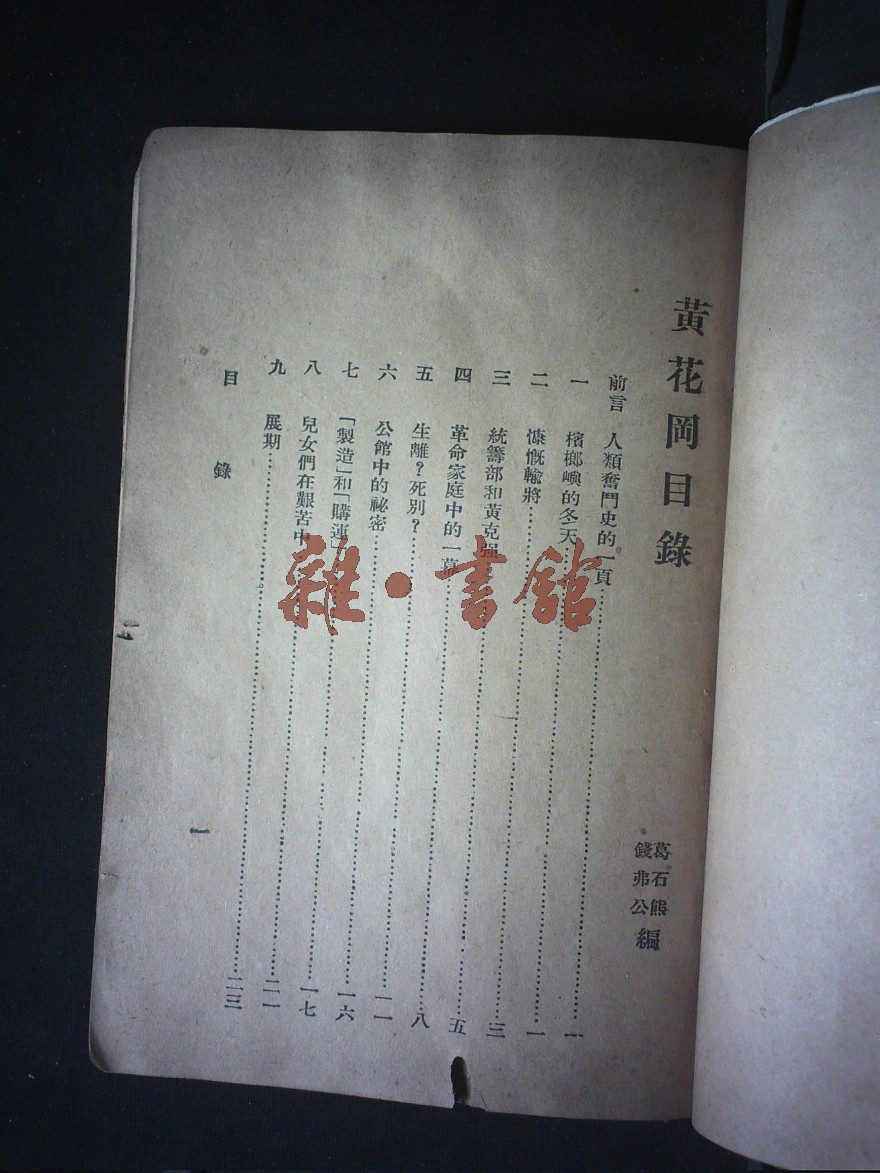 黃花岡目錄
葛石熊
錢弗公
編
前言　人類奮鬥史的一頁……一
一　檳榔嶼的冬天……一
二　慷慨輸將……三
三　統籌部和黃克强……五
四　革命家庭中的一幕……八
五　生離？死別？……一一
六　公館中的祕密……一六
七　「製造」和「購運」……一七
八　兒女們在艱苦中……二一
九　展期……二三
目錄　一
雜·書館